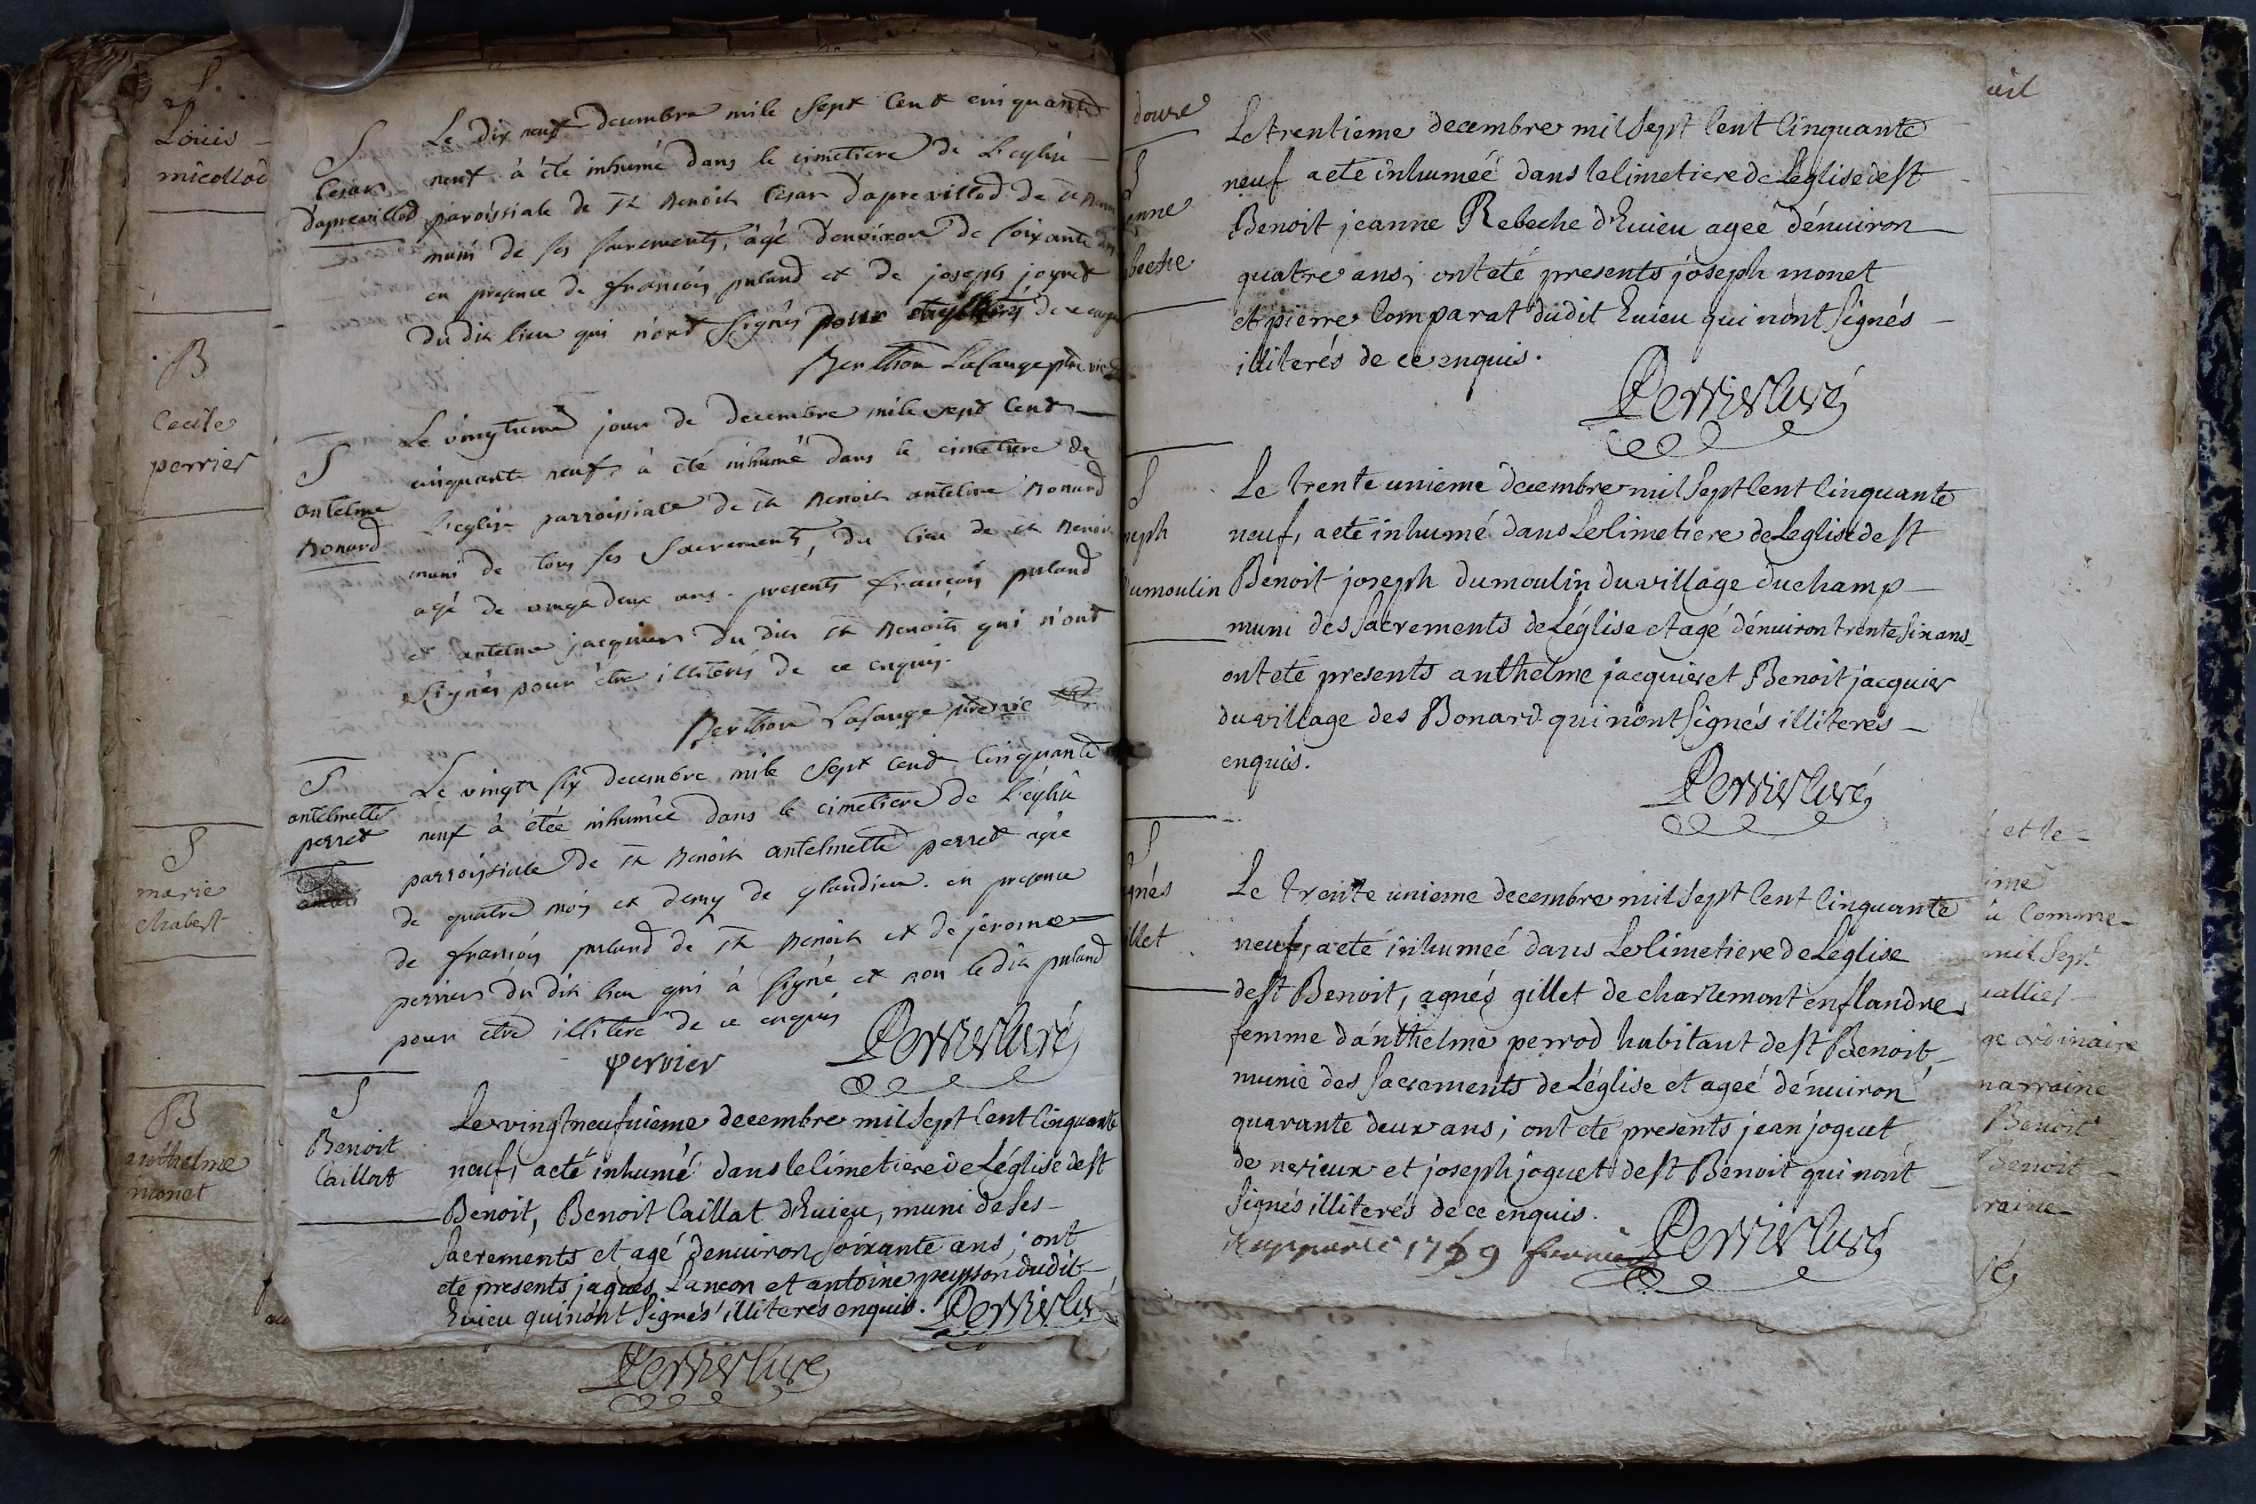 Louis
micollod
B
Cecile
perrier
S
marie
chabert
B
anthelme
monet
S
Cesar
d'aprevillod
Le dix neuf decembre mile sept Cent cinquante
neuf à été inhumé dans le cimetiere de L'eglise
paroissiale de st Benoit Cesar d'aprevillod de st Benoit
muni de ses sacrements, âgé d'environ de soixante ans
en presence de françois puland et de joseph joguet
du dit lieu qui n'ont signés pour être illiterés de ce enquis
Berthon Lasauge ptre vic
S
antelme
Bonard
Le vingtieme jour de decembre mile sept Cent
cinquante neuf, à été inhumé dans le cimetiere de
L'eglise parroissiale de st Benoit antelme Bonard
muni de tous ses Sacrements, du lieu de st Benoit
agé de vingt deux ans. presents françois puland
et antelme jacquier du dit st Benoit qui n'ont
signés pour être illiterés de ce enquis.
Berthon Lasauge ptre vic
S
antelmette
perret
Le vingt six decembre mile sept Cent Cinquante
neuf à étée inhumée dans le cimetiere de L'eglise
parroissiale de st Benoit antelmette perret agée
de quatre mois et demy de glandieu. en presence
de françois puland de st Benoit et de jerome
perrier du dit lieu qui à signé et non le dit puland
pour etre illiteré de ce enquis
perrier Perrier Curé
S
Benoit
Caillat
Le vingt neufuieme decembre mil sept Cent Cinquante
neuf, a eté inhumé dans le Cimetiere de L'église de st
Benoit, Benoit Caillat d'Evieu, muni de ses
sacrements et agé d'enuiron soixante ans; ont
eté presents jaques Lancon et antoine peysson dudit
Evieu qui n'ont signés illiterés enquis. Perrier Curé
Perrier Curé
doure
S
enne
beche
Le trentieme decembre mil sept Cent Cinquante
neuf a eté inhumeé dans le Cimetiere de Leglise de st
Benoit jeanne Rebeche d'Evieu ageé d'enuiron
quatre ans; ont eté presents joseph monet
et pierre Comparat dudit Evieu qui n'ont signés
illiterés de ce enquis.
Perrier Curé
S
seph
dumoulin
Le trente unieme decembre mil sept Cent Cinquante
neuf, a eté inhumé dans Le Cimetiere de Leglise de st
Benoit joseph dumoulin du village du champ
muni des sacrements de L'église et agé d'enuiron trente six ans
ont eté presents anthelme jacquier et Benoit jacquier
du village des Bonard qui n'ont signés illiterés
enquis.
Perrier Curé
S
gnés
illet
Le trente unieme decembre mil sept Cent Cinquante
neuf, a eté inhumeé dans Le Cimetiere de Leglise
de st Benoit, agnés gillet de charlemont en flandre
femme d'anthelme perrod habitant de st Benoit
munie des sacrements de L'église et ageé d'enuiron
quarante deux ans; ont eté presents jean joguet
de nerieux et joseph joguet de st Benoit qui n'ont
signés illiterés de ce enquis.
Perrier Curé
et le
à Comme
mil sept
ge ordinaire
marraine
Benoit
Benoit
raine